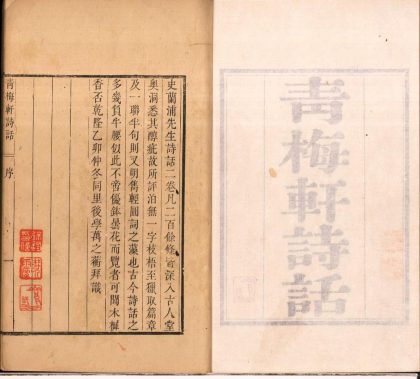 青梅軒詩話
史蘭浦先生詩話二卷凡二百餘條皆深入古人堂
奧洞悉其醇疵故所評泊無一字枝梧至獵取篇章
及一聯半句則又雋輕圓詞之藻也古今詩話之
多幾負牛腰似此不啻優鉢曇花而覽者可聞木樨
香否乾隆乙卯仲冬同里後學萬之蘅拜識
青梅軒詩話 序 一